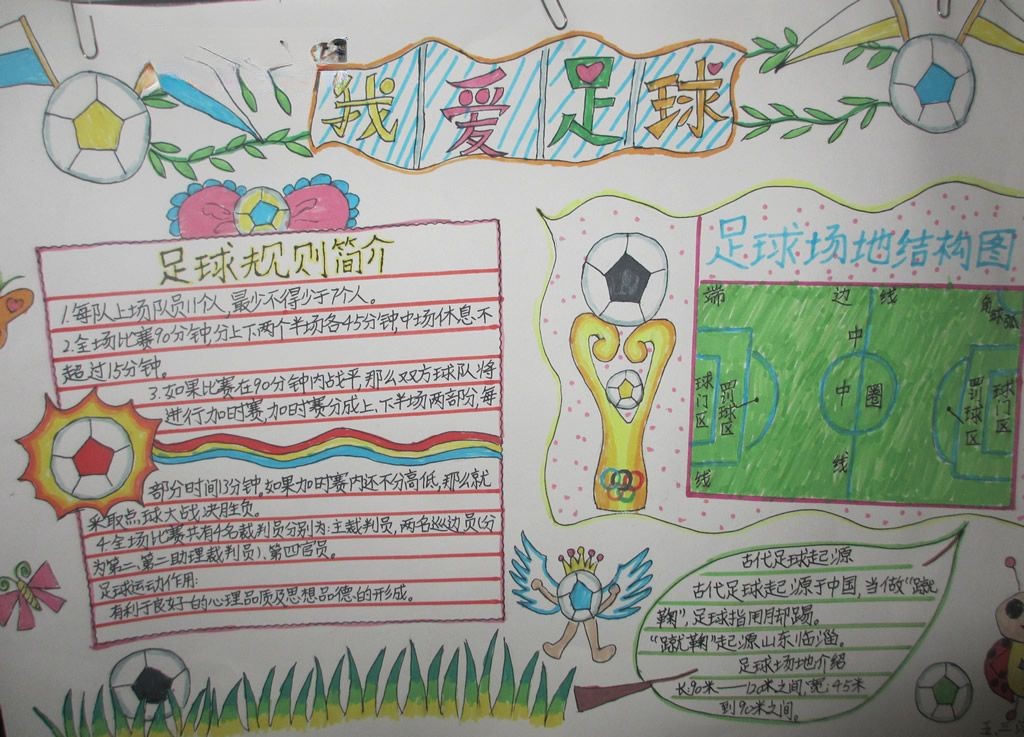 我爱足球
足球规则简介
1.每队上场队员11个人,最少不得少于7个人。
2.全场比赛90分钟,分上下两个半场各45分钟,中场休息不
超过15分钟。
3.如果比赛在90分钟内战平,那么双方球队将
进行加时赛,加时赛分成上、下半场两部分,每
部分时间13分钟。如果加时赛内还不分高低,那么就
采取点球大战,决胜负。
4.全场比赛共有4名裁判员分别为:主裁判员,两名巡边员(分
为第一、第二助理裁判员)、第四官员。
足球运动作用:
有利于良好的心理品质及思想品德的形成。
足球场地结构图
端 边线 角球弧
中
球门区 罚球区 中圈 罚球区 球门区
线 线
古代足球起源
古代足球起源于中国,当做“蹴
鞠”,足球指用脚踢。
“蹴鞠”起源山东临淄。
足球场地介绍
长:90米——120米之间,宽:45米
到90米之间。